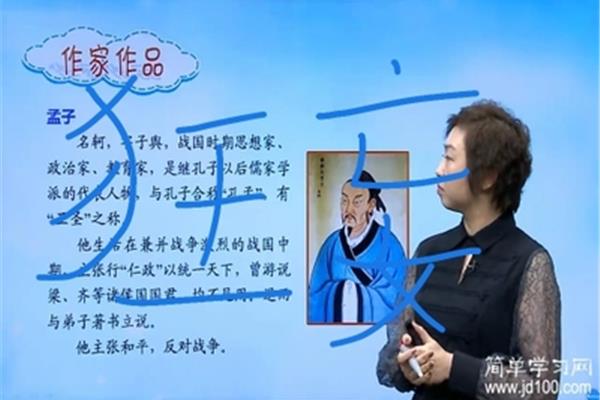 作家作品
狂妄
孟子
名轲，字子舆，战国时期思想家、
政治家、教育家，是继孔子以后儒家学
派的代表人物，与孔子合称“孔孟”，有
“亚圣”之称
他生活在兼并战争激烈的战国中
期，主张行“仁政”以统一天下，曾游说
梁、齐等诸侯国国君，均不见用，退而
与弟子著书立说。
他主张和平，反对战争。
简单学习网
www.jd100.com